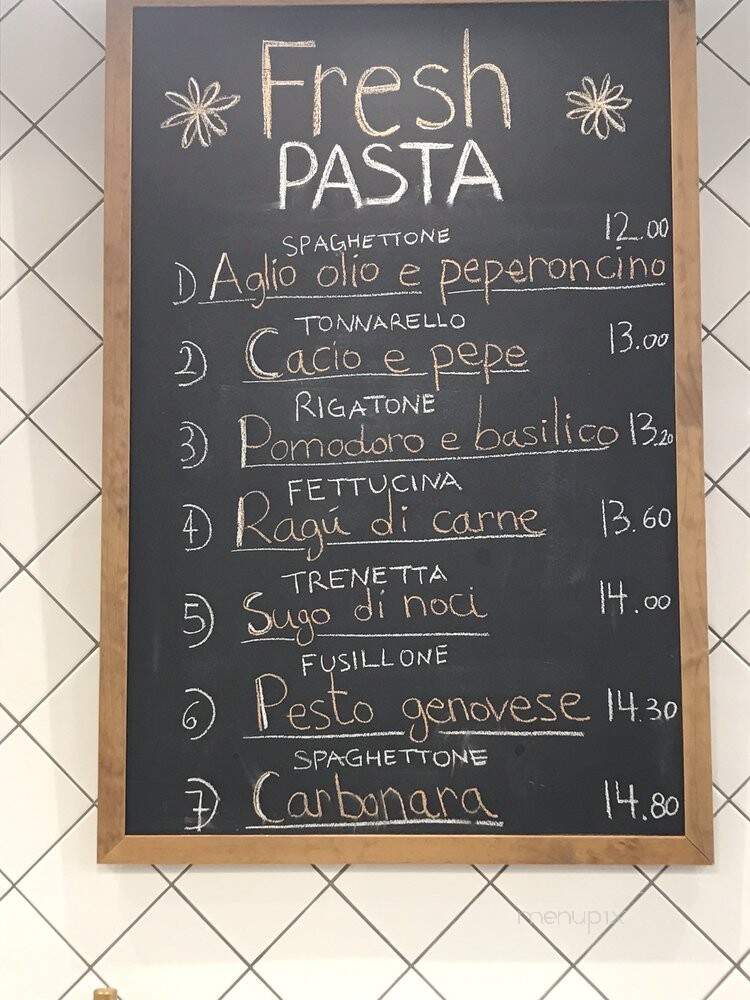 Fresh
PASTA
SPAGHETTONE 12.00
1) Aglio olio e peperoncino
TONNARELLO
2) Cacio e pepe 13.00
RIGATONE
3) Pomodoro e basilico 13.20
FETTUCINA
4) Ragú di carne 13.60
TRENETTA
5) Sugo di noci 14.00
FUSILLONE
6) Pesto genovese 14.30
SPAGHETTONE
7) Carbonara 14.80
menupix